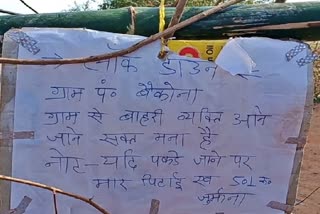 लॉक डाउन
ग्राम पं० बैकोना
ग्राम से बाहरी व्यक्ति आने
जाने सक्त मना है
नोट - यदि पकडे जाने पर
मार पिटाई एवं 501 रु०
जुर्माना